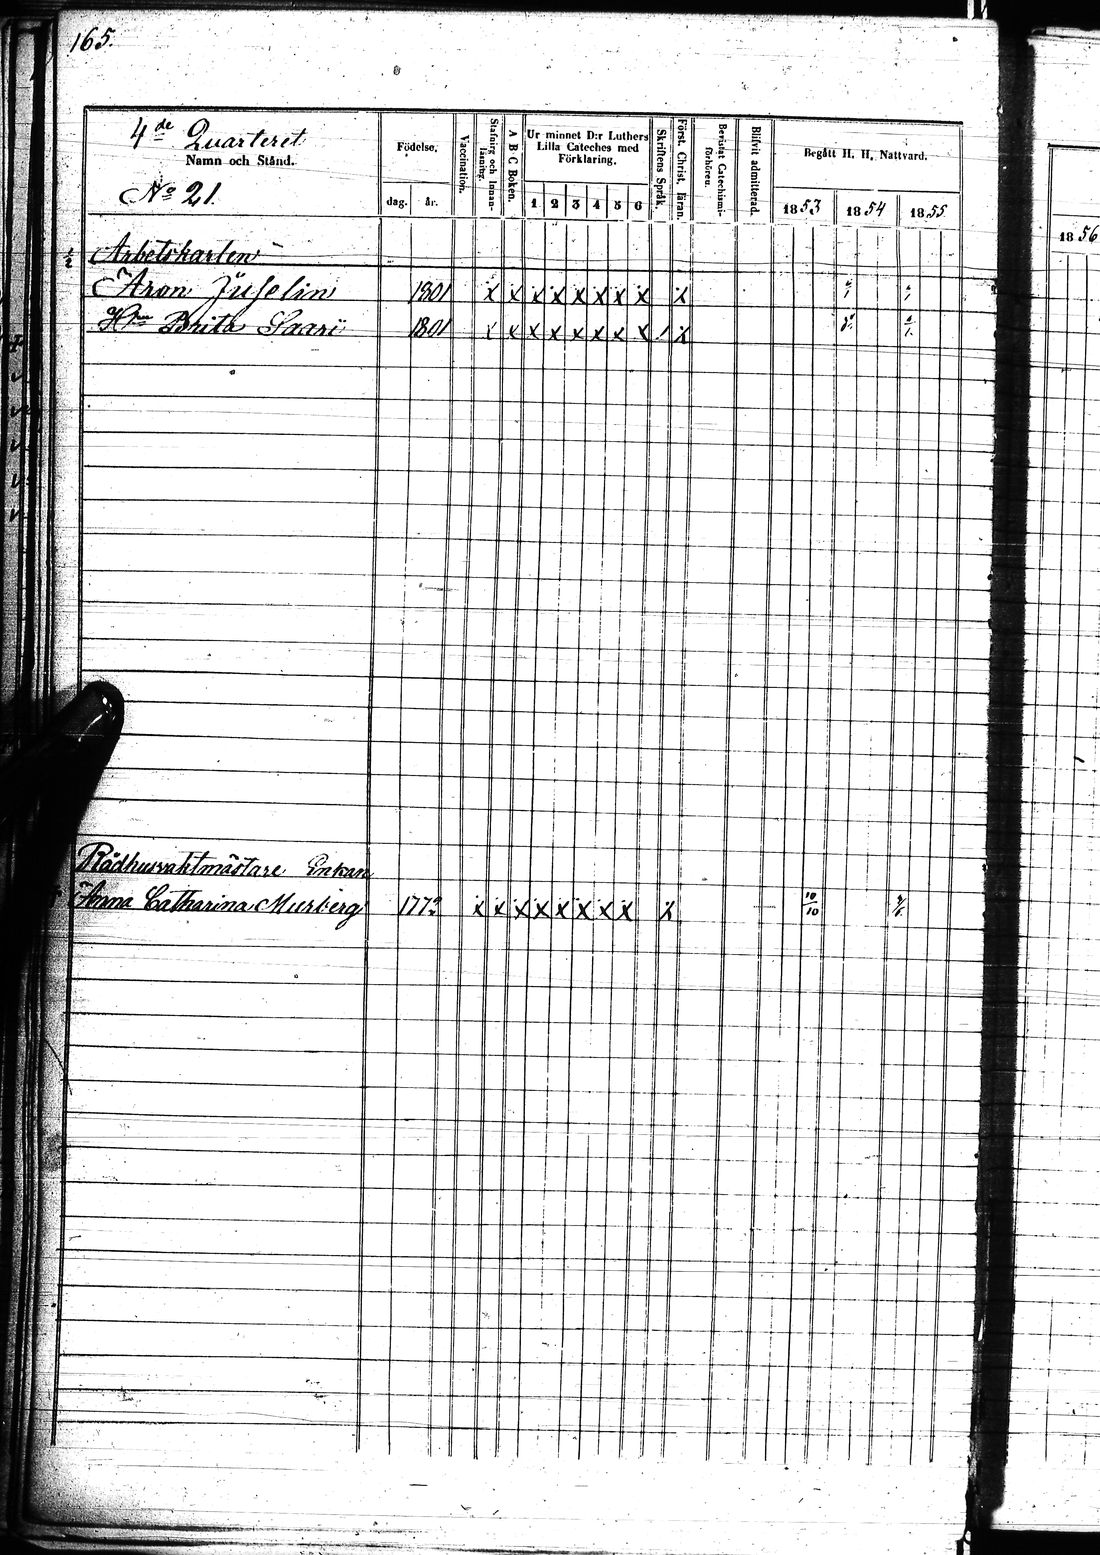 165.
4de Quarteret
Namn och Stånd.
No 21.
Födelse.
dag. år.
Vaccination.
Stafning och Innanläsning.
A B C Boken.
Ur minnet D:r Luthers Lilla Cateches med Förklaring.
1 2 3 4 5 6
Skriftens Språk.
Först. Christ. läran.
Bevistat Catechismiförhören.
Blifvit admitterad.
Begått H. H. Nattvard.
1853 1854 1855
1856
1/2 Arbetskarlen
Aron Juselin 1801 x x x x x x x x x
Hu Brita Saari 1801 x x x x x x x x / x
Rådhusvaktmästare Enkan
Anna Catharina Murberg 1772 x x x x x x x x x 10/10